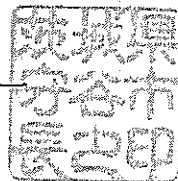 茨城県
守谷市
長之印